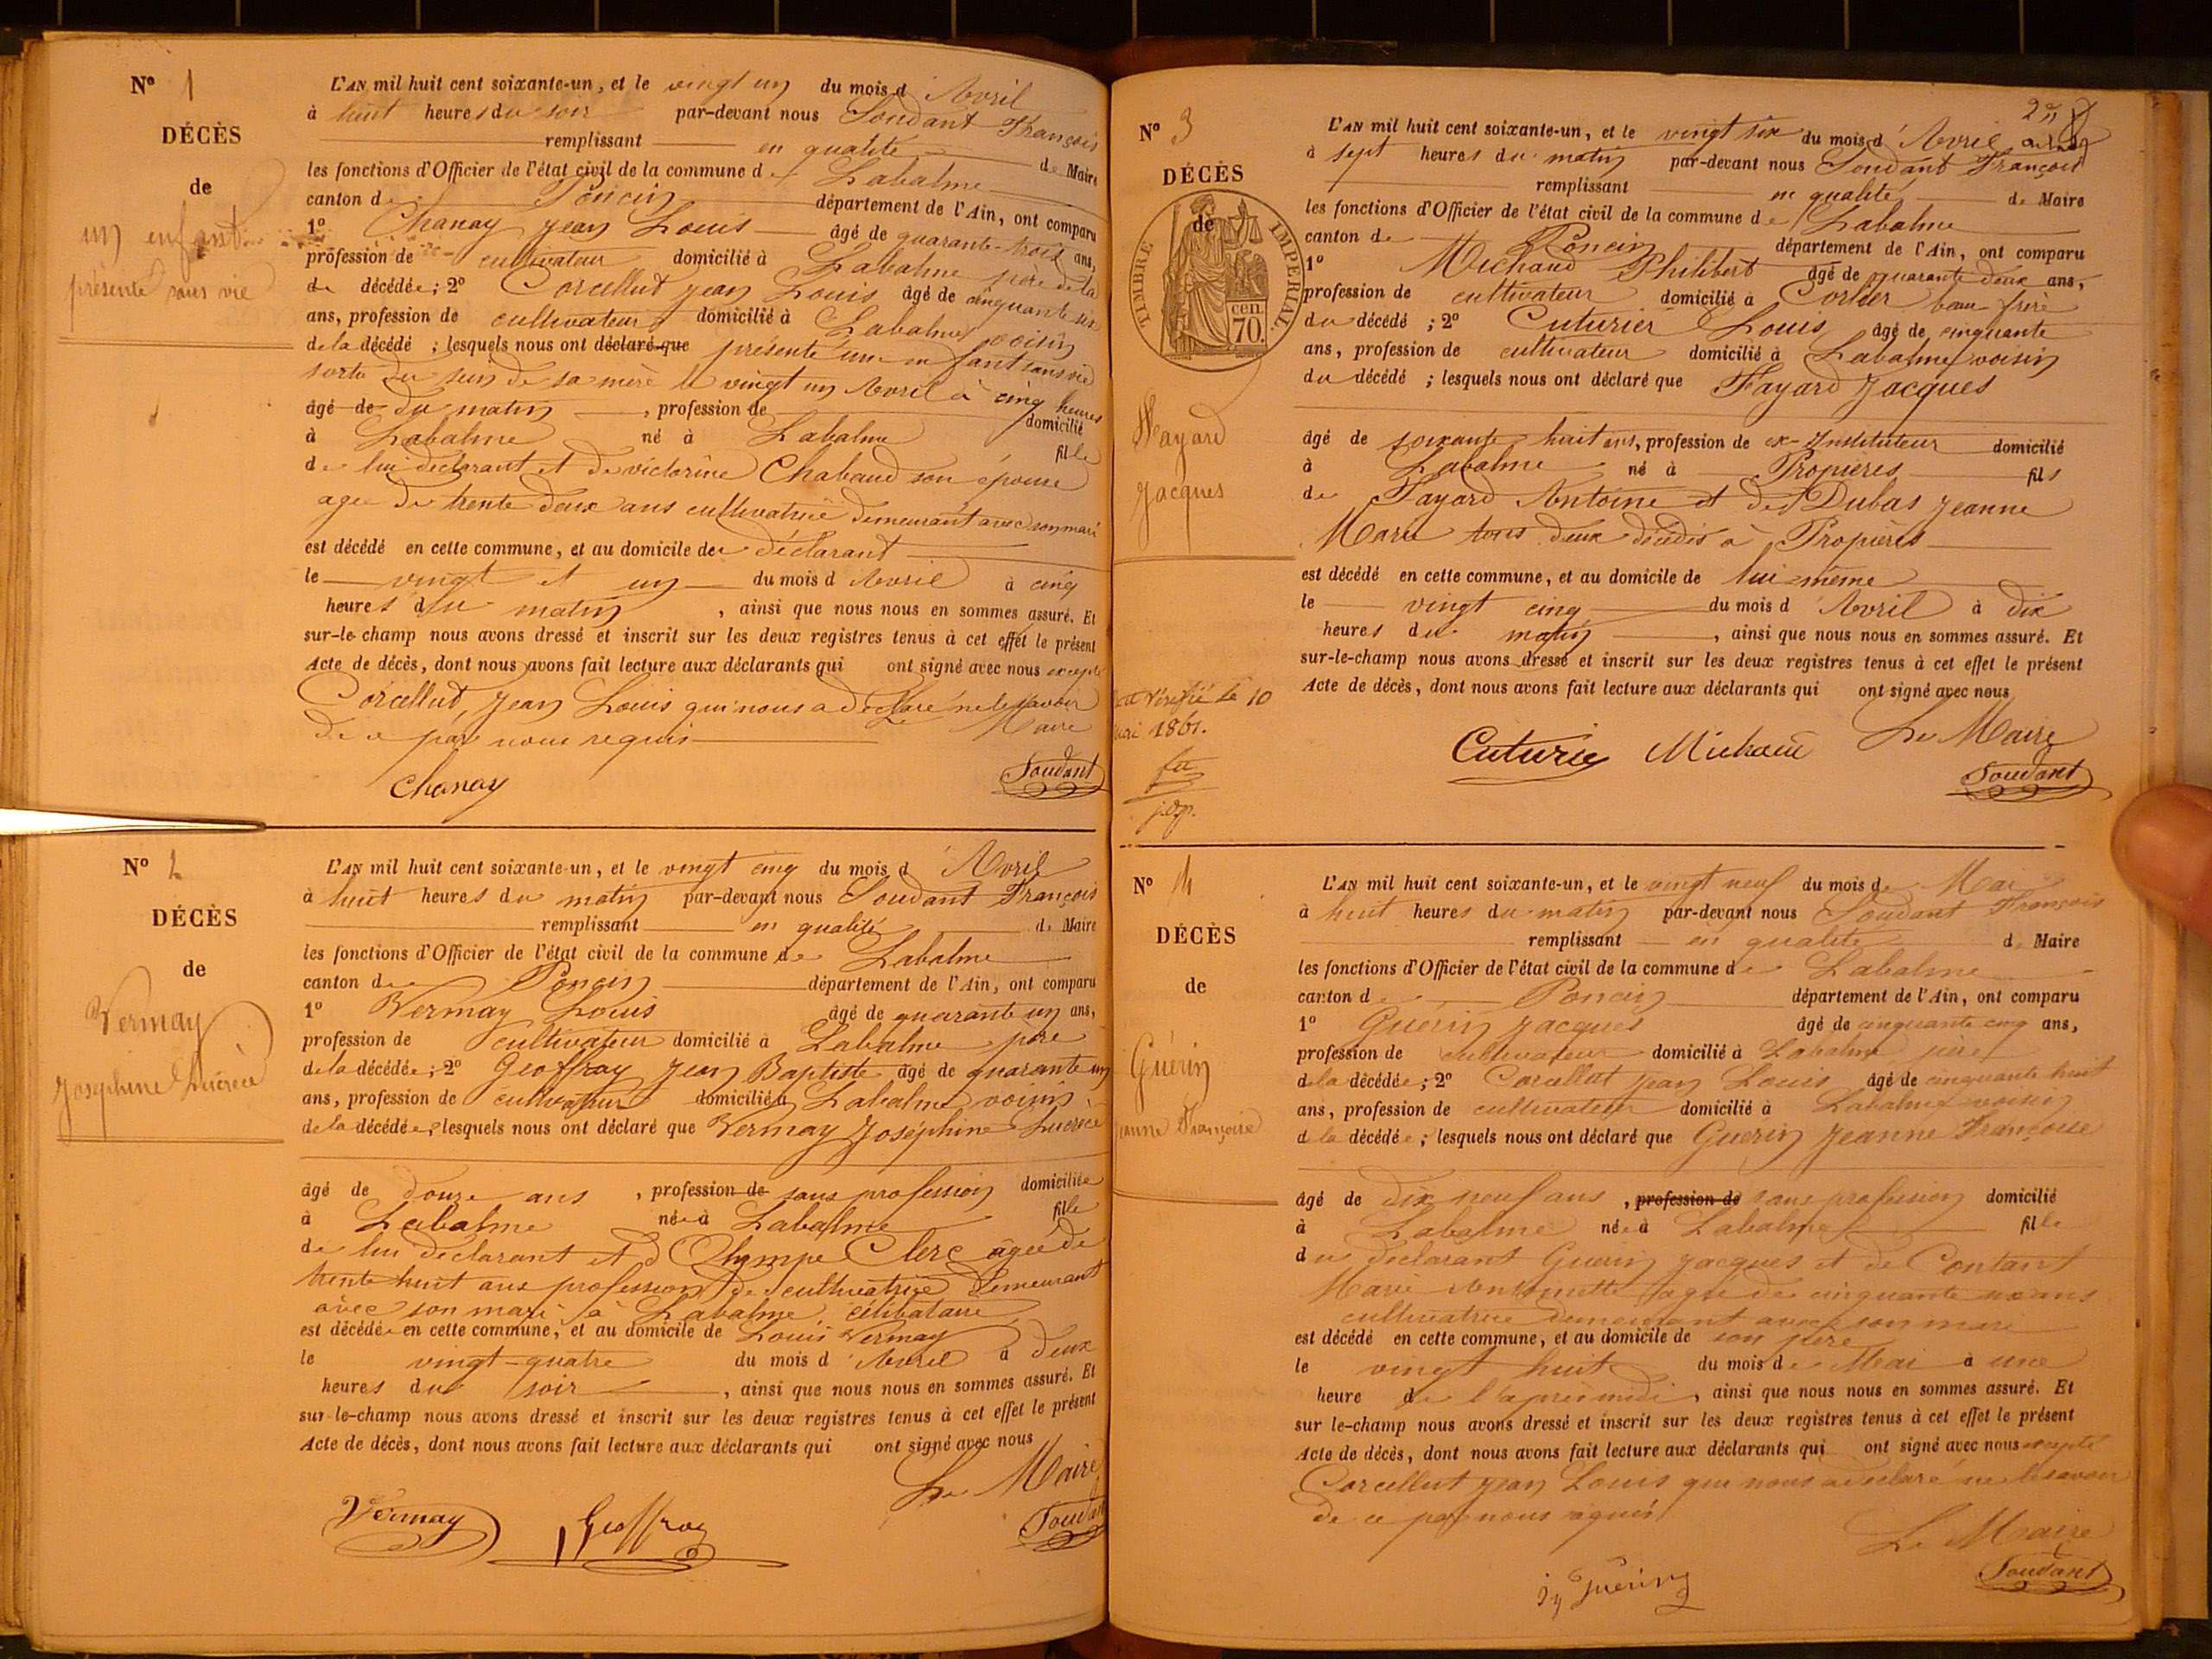 N° 1
DÉCÈS
de
un enfant
présenté sans vie
L'AN mil huit cent soixante-un, et le vingt un du mois d'Avril
à huit heures du soir par-devant nous Soudant François
remplissant en qualité de Maire
les fonctions d'Officier de l'état civil de la commune de Labalme
canton de Poncin département de l'Ain, ont comparu
1° Chanay Jean Louis âgé de quarante-trois ans,
profession de cultivateur domicilié à Labalme père de la
de décédée; 2° Corcellut Jean Louis âgé de cinquante six
ans, profession de cultivateur domicilié à Labalme voisin
de la décédé ; lesquels nous ont déclaré que présenté un enfant sans vie
sorti du sein de sa mère le vingt un Avril à cinq heures
âgé de du matin , profession de domicilié
à Labalme né à Labalme fille
de lui déclarant et de victorine Chabaud son épouse
agée de trente deux ans cultivatrice demeurant avec son mari
est décédé en cette commune, et au domicile de déclarant
le vingt et un du mois d Avril à cinq
heures du matin , ainsi que nous nous en sommes assuré. Et
sur-le-champ nous avons dressé et inscrit sur les deux registres tenus à cet effet le présent
Acte de décès, dont nous avons fait lecture aux déclarants qui ont signé avec nous excepté
Corcellut, Jean Louis qui nous a déclaré ne le savoir
de ce par nous requis Le Maire
Chanay Soudant
N° 2
DÉCÈS
de
Vermay
Joséphine Lucrèce
L'AN mil huit cent soixante-un, et le vingt cinq du mois d'Avril
à huit heures du matin par-devant nous Soudant François
remplissant en qualité de Maire
les fonctions d'Officier de l'état civil de la commune de Labalme
canton de Poncin département de l'Ain, ont comparu
1° Vermay Louis âgé de quarante un ans,
profession de cultivateur domicilié à Labalme père
de la décédée; 2° Geoffray Jean Baptiste âgé de quarante un
ans, profession de cultivateur domicilié à Labalme voisin
de la décédée, lesquels nous ont déclaré que Vermay Joséphine Lucrèce
âgé de douze ans , profession de sans profession domiciliée
à Labalme née à Labalme fille
de lui déclarant et d'Olympe Clerc âgée de
trente huit ans profession de cultivatrice demeurant
avec son mari à Labalme célibataire
est décédée en cette commune, et au domicile de Louis Vermay
le vingt-quatre du mois d'Avril à deux
heures du soir , ainsi que nous nous en sommes assuré. Et
sur-le-champ nous avons dressé et inscrit sur les deux registres tenus à cet effet le présent
Acte de décès, dont nous avons fait lecture aux déclarants qui ont signé avec nous
Le Maire
Vermay Geoffray Soudant
N° 3
DÉCÈS
de
TIMBRE IMPERIAL.
70 cen.
Fayard
Jacques
Vérifié le 10
mai 1861.
L'AN mil huit cent soixante-un, et le vingt six du mois d'Avril
à sept heures du matin par-devant nous Soudant François
remplissant en qualité de Maire
les fonctions d'Officier de l'état civil de la commune de Labalme
canton de Poncin département de l'Ain, ont comparu
1° Michaud Philibert âgé de quarante deux ans,
profession de cultivateur domicilié à Corlier beau frère
du décédé ; 2° Cuturier Louis âgé de cinquante
ans, profession de cultivateur domicilié à Labalme voisin
du décédé ; lesquels nous ont déclaré que Fayard Jacques
âgé de soixante huit ans, profession de ex-Instituteur domicilié
à Labalme né à Propières fils
de Fayard Antoine et de Dubas Jeanne
Marie tous deux décédés à Propières
est décédé en cette commune, et au domicile de lui même
le vingt cinq du mois d'Avril à dix
heures du matin , ainsi que nous nous en sommes assuré. Et
sur-le-champ nous avons dressé et inscrit sur les deux registres tenus à cet effet le présent
Acte de décès, dont nous avons fait lecture aux déclarants qui ont signé avec nous
Le Maire
Cuturier Michaud Soudant
N° 4
DÉCÈS
de
Guérin
Jeanne Françoise
L'AN mil huit cent soixante-un, et le vingt neuf du mois de Mai
à huit heures du matin par-devant nous Soudant François
remplissant en qualité de Maire
les fonctions d'Officier de l'état civil de la commune de Labalme
canton de Poncin département de l'Ain, ont comparu
1° Guérin Jacques âgé de cinquante cinq ans,
profession de cultivateur domicilié à Labalme père
de la décédée; 2° Corcellut Jean Louis âgé de cinquante huit
ans, profession de cultivateur domicilié à Labalme voisin
de la décédée; lesquels nous ont déclaré que Guerin Jeanne Françoise
âgé de dix neuf ans , profession de sans profession domicilié
à Labalme née à Labalme fille
du déclarant Guerin Jacques et de Contant
Marie Antoinette agée de cinquante ans
cultivatrice demeurant avec son mari
est décédé en cette commune, et au domicile de son père
le vingt huit du mois de Mai à une
heure de l'après midi, ainsi que nous nous en sommes assuré. Et
sur le-champ nous avons dressé et inscrit sur les deux registres tenus à cet effet le présent
Acte de décès, dont nous avons fait lecture aux déclarants qui ont signé avec nous excepté
Corcellut Jean Louis qui nous a déclaré ne le savoir
de ce par nous requis
Le Maire
Guérin Soudant